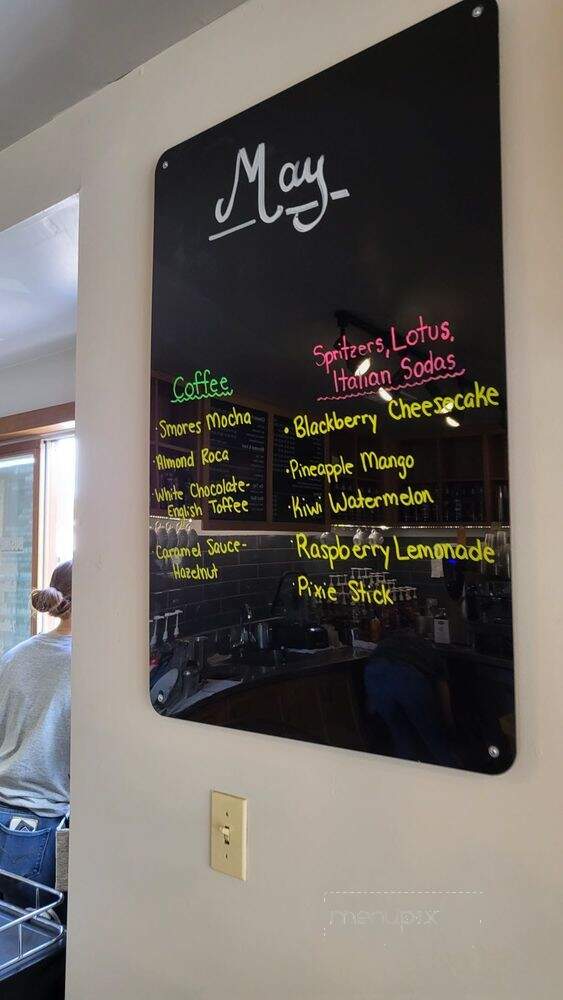 May
Coffee
·Smores Mocha
·Almond Roca
·White Chocolate-
English Toffee
·Caramel Sauce-
Hazelnut
Spritzers, Lotus,
Italian Sodas
·Blackberry Cheesecake
·Pineapple Mango
·Kiwi Watermelon
·Raspberry Lemonade
·Pixie Stick
menupix